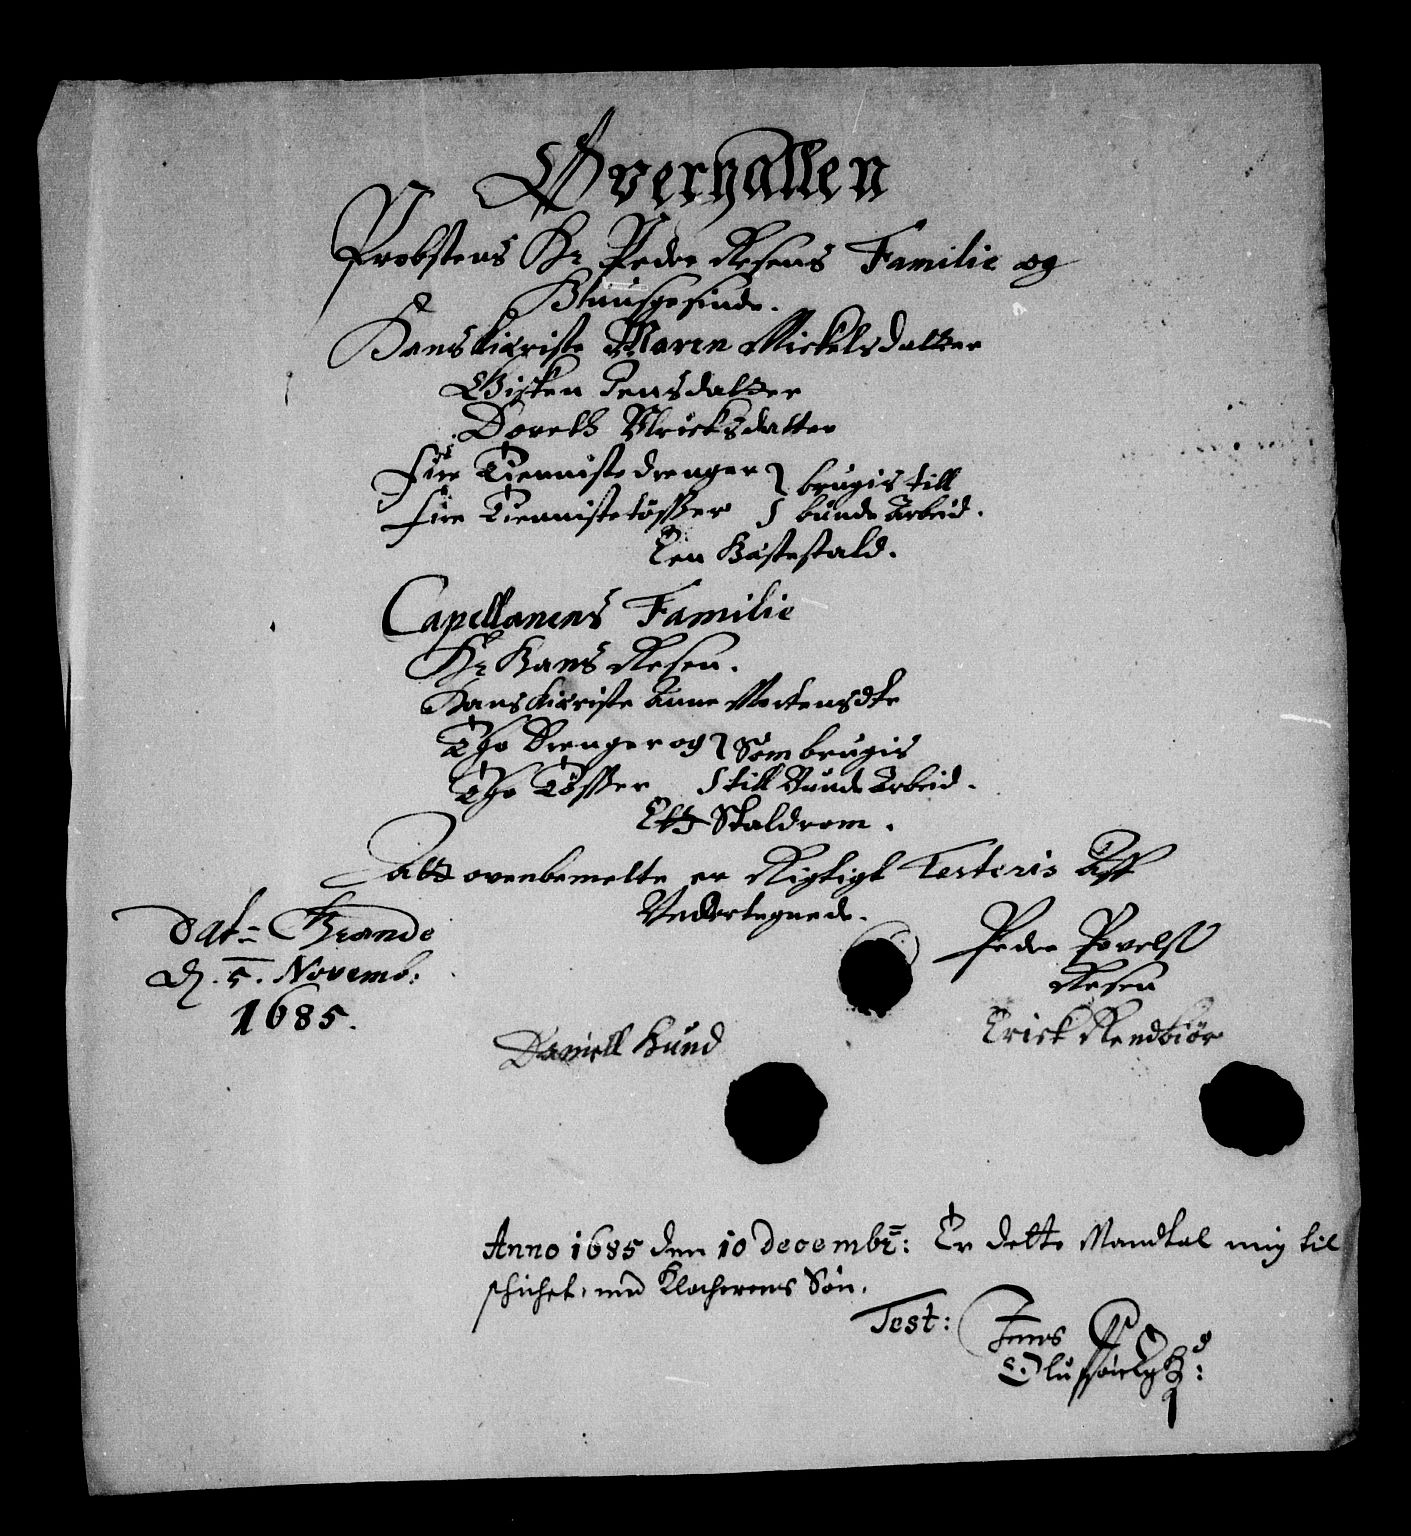 Øverhallen
Probstens Hr Peder Resens Familie og
Huusgesinde.
Hans kierriste Maren Mickelsdatter
Gisken Jensdatter
Doreth Ulricksdatter
fire Tienniste drenger } brugis till
fire Tiennistetøsser } bunde Arbeid.
Een Hæstestald.
Capellanens Familie
Hr Hans Resen.
Hans kierriste Anne Mortensdtr
Tho Drenger og } Som brugis
Tho Tøsser } till Bunde Arbeid.
Ett Staldrom.
att ovenbemelte er Rigtigt Testeris Aff
Undertegnede.
Dat: Grande
d. 5. Novemb:
1685.
Peder Povelss
Resen
Daniell Hund
Erick
Anno 1685 den 10 Decembr: Er dette Mandtal mig til
schichet, med Klocherens Søn.
Test: Jens